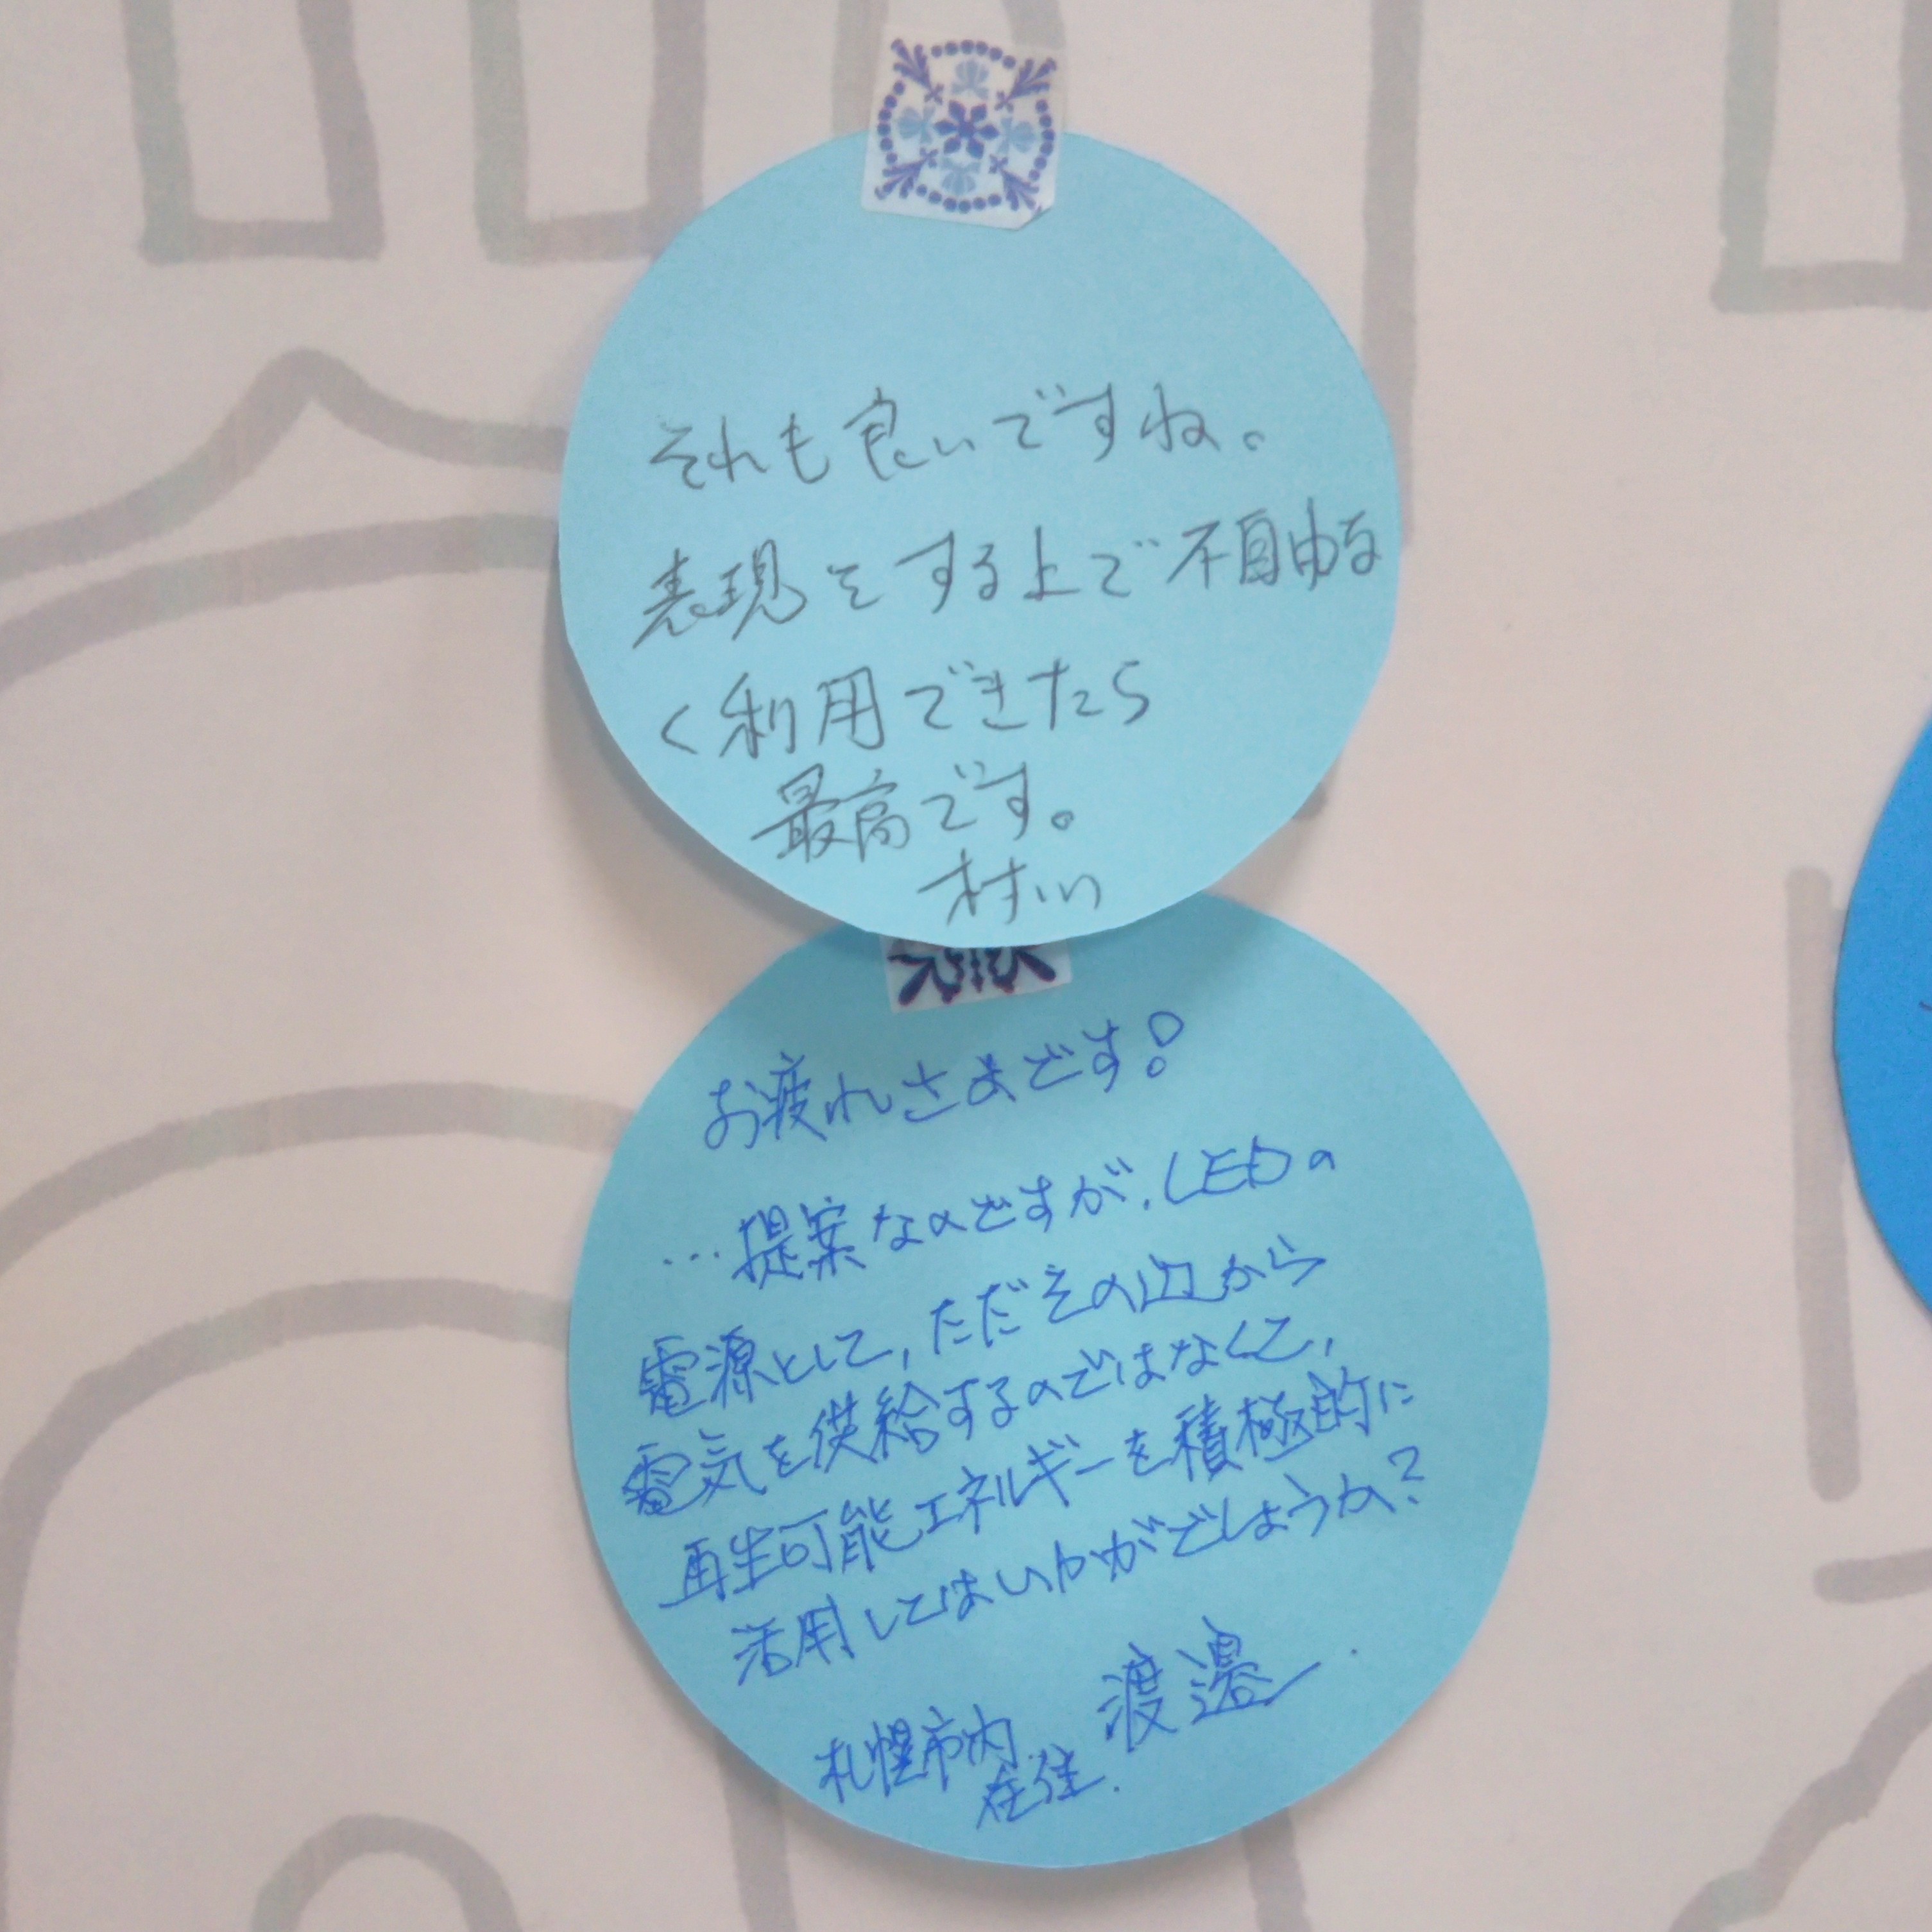 それも良いですね。
表現をする上で不自由な
く利用できたら
最高です。
村川
お疲れさまです!
…提案なのですが、LEDの
電源として、ただその辺から
電気を供給するのではなくて、
再生可能エネルギーを積極的に
活用してはいかがでしょうか?
札幌市内
在住.
渡邊.